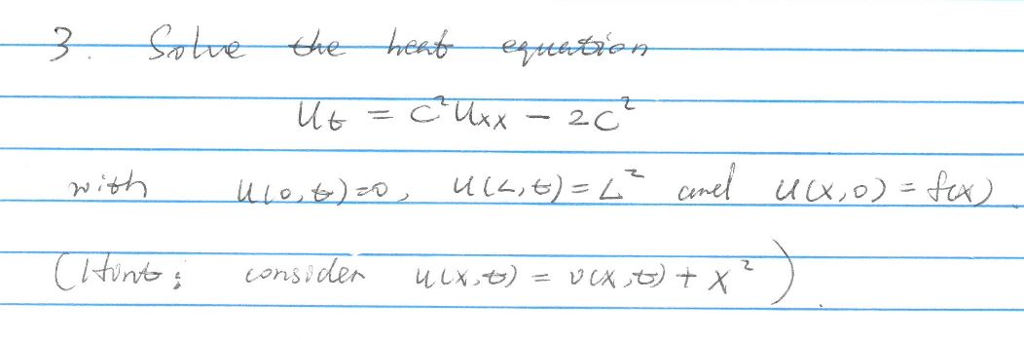 3. Solve the heat equation
u_t = c²u_xx − 2c²
with u(0,t)=0, u(L,t)=L² and u(x,0) = f(x)
(Hint: consider u(x,t) = v(x,t) + x²).